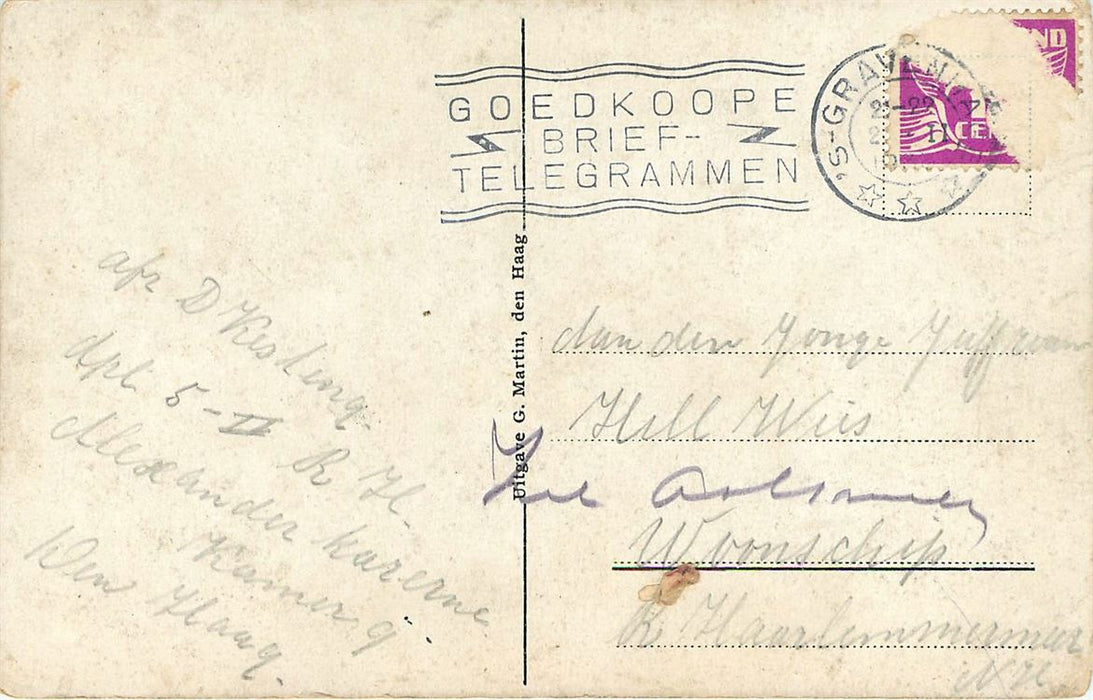 GOEDKOOPE
BRIEF-
TELEGRAMMEN
'S-GRAVEN
Uitgave G. Martin, den Haag
afz D Kesling.
dpt. 5-II R H.
Alexander kazerne
Kamer 9.
Den Haag.
Aan den Jonge Juffr van
Hill Wies
Aalsmeer
Woonschip
R Haarlemmermeer
N H.